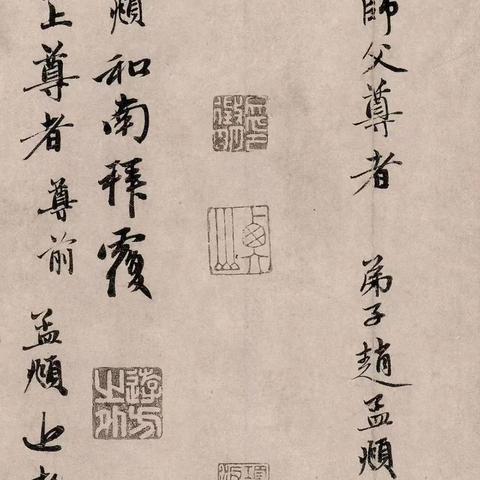 師父尊者 弟子趙孟頫
頫和南拜覆
遊方之外
上尊者 尊前 孟頫